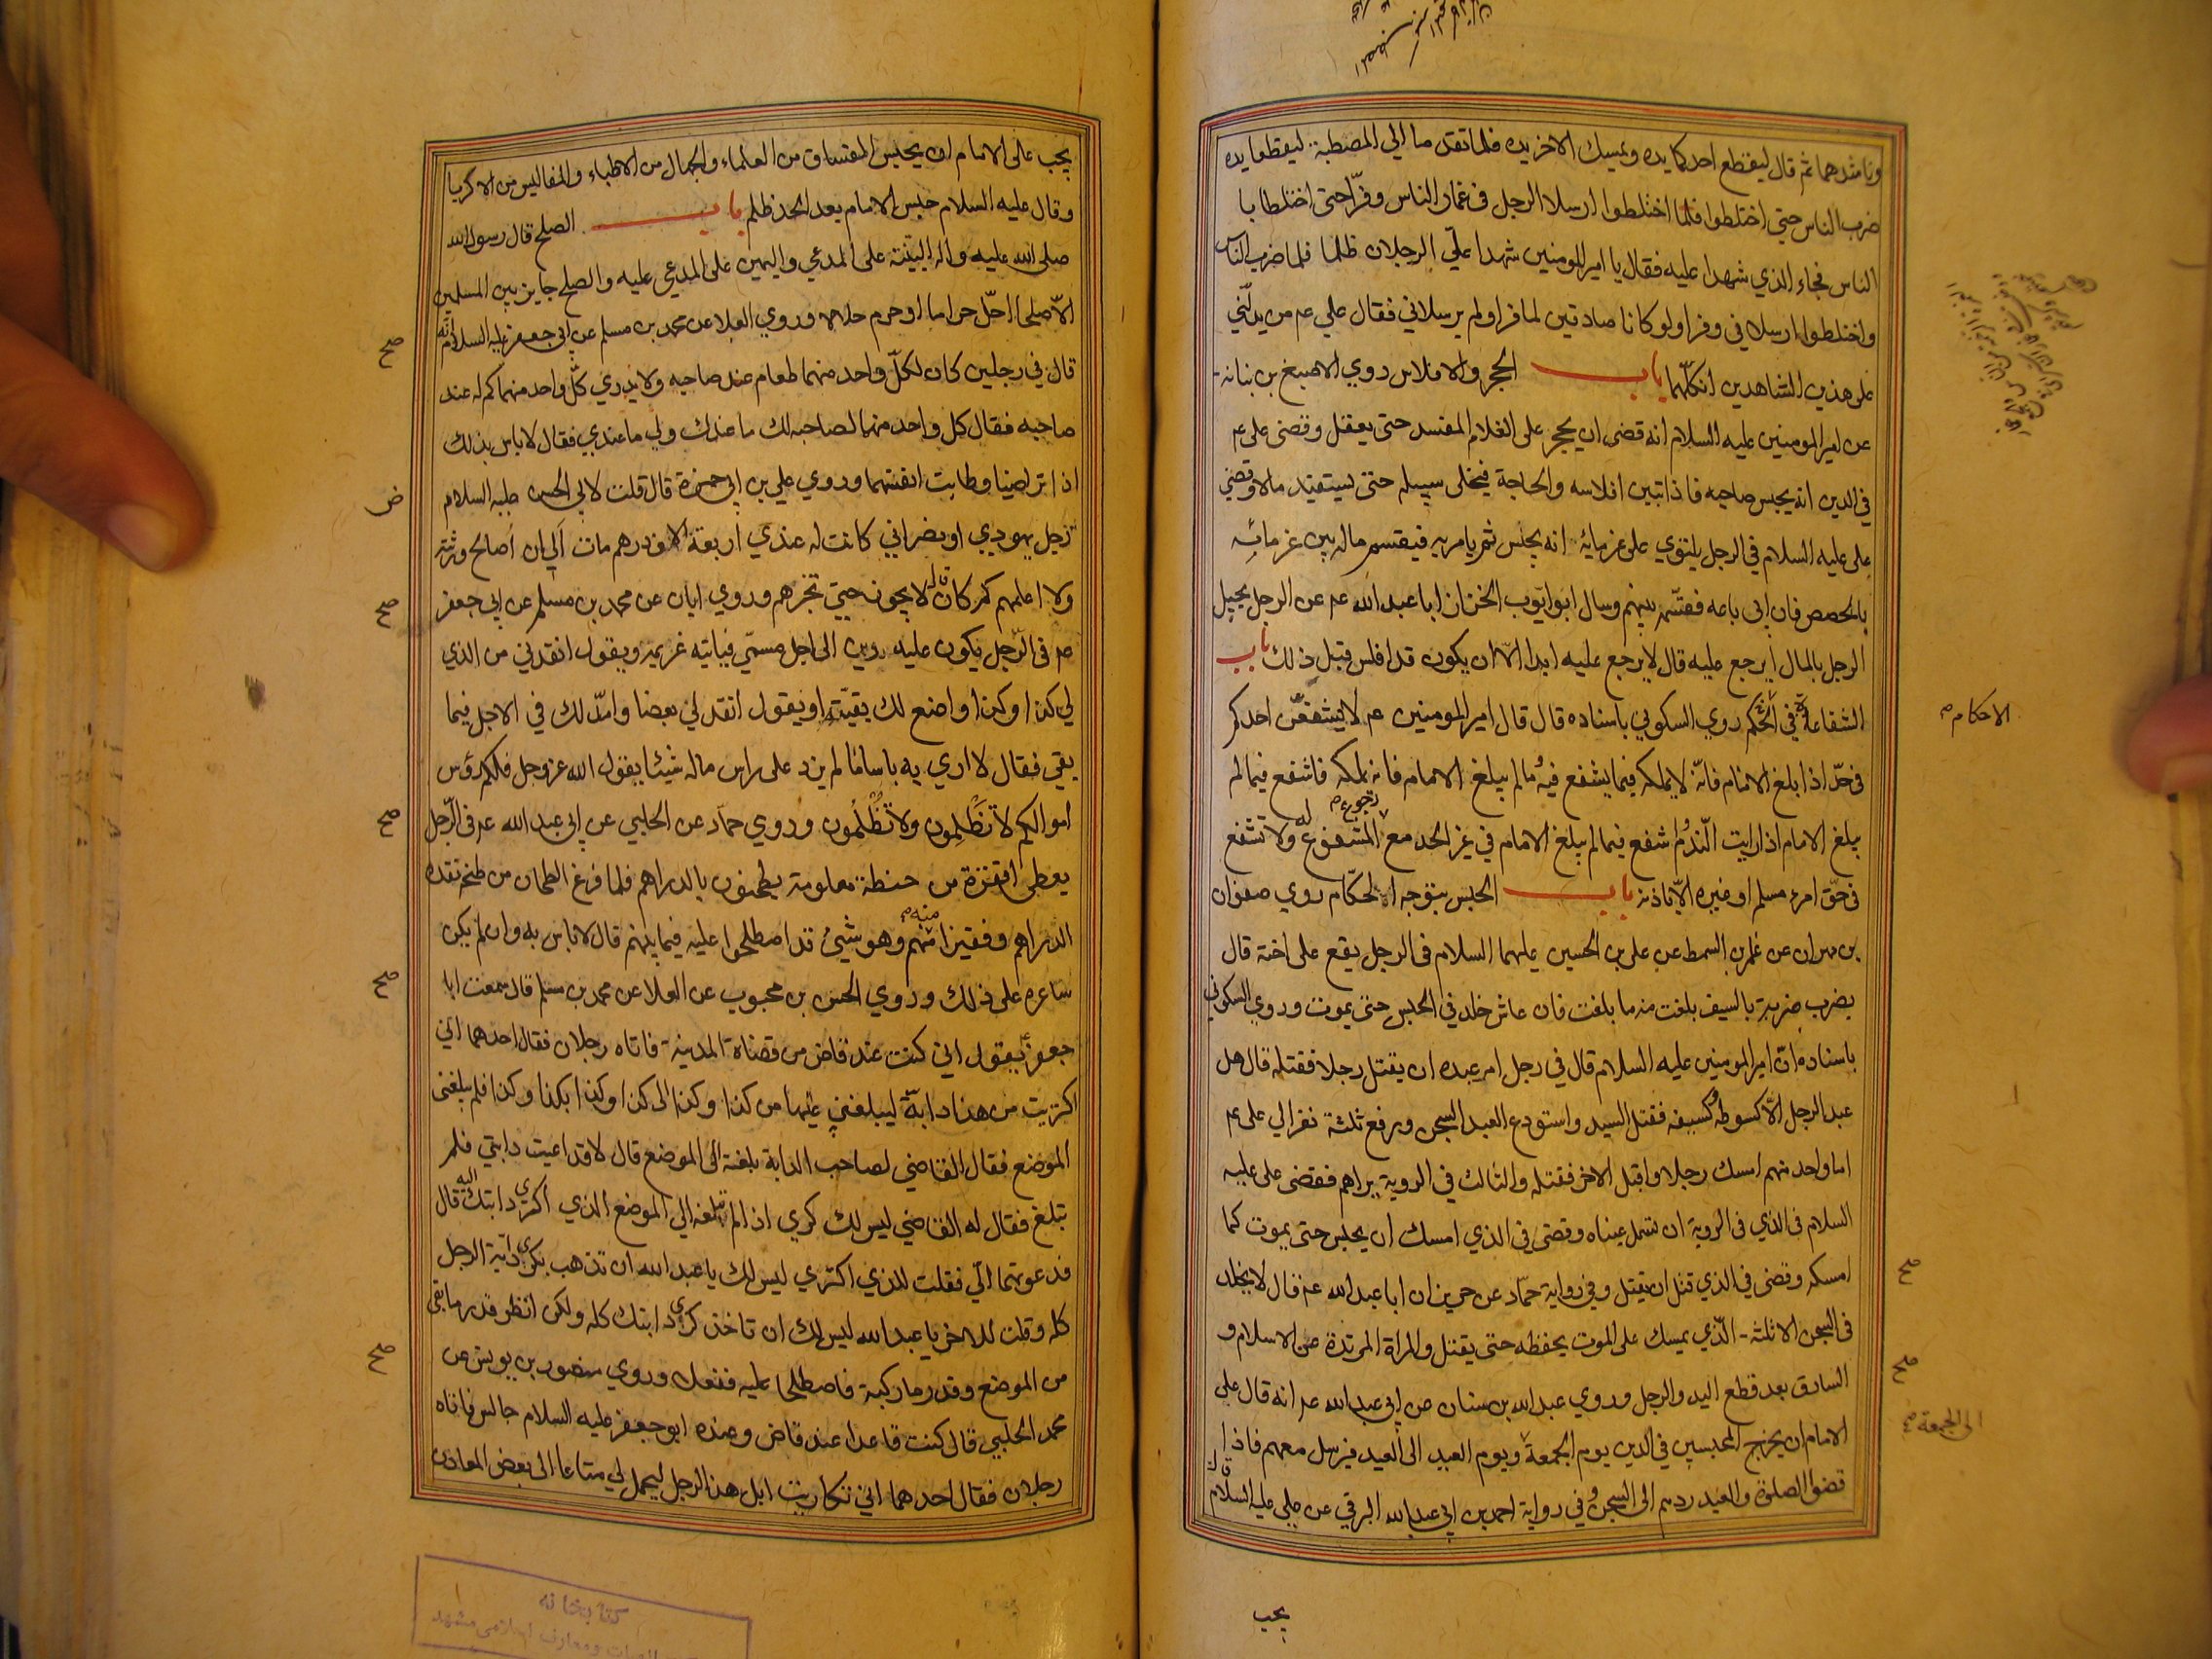 وناشدهما ثم قال ليقطع احدكما يده ويمسك الاخر يده فلما تقدما الي المصطبة ليقطعا يده
ضرب الناس حتي اختلطوا فلما اختلطوا ارسلا الرجل في غمار الناس وفرّا حتي اختلطا با
الناس فجاء الذي شهدا عليه فقال يا امير المومنين شهدا عليّ الرجلان ظلما فلما ضرب الناس
واختلطوا ارسلاني وفرا ولو كانا صادقين لما فرا ولم يرسلاني فقال علي عم من يدلّني
على هذين الشاهدين انكلهما باب الحجر والافلاس روي الاصبغ بن نباته
عن امير المومنين عليه السلام انه قضى ان يحجر على الغلام المفسد حتى يعقل وقضى على عم
في الدين انه يحبس صاحبه فاذا تبين افلاسه والحاجة فيخلى سبيله حتى يستفيد مالا وقضي
على عليه السلام في الرجل يلتوي على غرمائه انه يحبس ثم يامر به فيقسم ماله بين غرمائه
بالحصص فان ابى باعه فقسّمه بينهم وسال ابو ايّوب الخزاز ابا عبد الله عم عن الرجل يحيل
الرجل بالمال ايرجع عليه قال لا يرجع عليه ابدا الّا ان يكون قد افلس قبل ذلك باب
الشفاعة في الحكم روي السكوني باسناده قال قال امير المومنين عم لا يشفعنّ احدكم
الاحكام
في حدّ اذا بلغ الامام فانّه لا يملكه فيما يشفع فيه وما لم يبلغ الامام فانه يملكه فاشفع فيما لم
يبلغ الامام اذا رايت النّدم واشفع فيما لم يبلغ الامام في غير الحد مع رجوع المشفوع له ولا تشفع
في حقّ امرء مسلم او غيره الّا باذنه باب الحبس بتوجه الحكّام روي صفوان
بن مهران عن عامر بن السمط عن على بن الحسين عليهما السلام في الرجل يقع على اخته قال
يضرب ضربة بالسيف بلغت منه ما بلغت فان عاش خلد في الحبس حتى يموت وروي السكوني
باسناده انّ امير المومنين عليه السلام قال في رجل امر عبده ان يقتل رجلا فقتله قال هل
عبد الرجل الّا كسوطه كسيفه فقتل السيد واستودع العبد السجن ورفع ثلثة نفر الي على عم
اما واحد منهم امسك رجلا واقبل الاخر فقتله والثالث في الروية يراهم فقضى على عليه
السلام في الذي في الروية ان تسمل عيناه وقضى في الذي امسك ان يحبس حتى يموت كما
امسكه وقضى في الذي قتل ان يقتل وفي رواية حمّاد عن حريز ان ابا عبد الله عم قال لا يخلد
صح
في السجن الا ثلثة الّذي يمسك على الموت يحفظه حتى يقتل والمراة المرتدة عن الاسلام و
السارق بعد قطع اليد والرجل وروي عبد الله بن سنان عن ابي عبد الله عم انه قال على
صح
الامام ان يخرج المحبسين في الدين يوم الجمعة ويوم العيد الى العيد فيرسل معهم فاذا
الى الجمعة
قضوا الصلوة والعيد ردهم الى السجن وفي رواية احمد بن ابي عبد الله البرقي عن على عليه السلام قال
يجب
يجب على الامام ان يحبس الفساق من العلماء والجهال من الاطباء والمفاليس من الاكريا
وقال عليه السلام حبس الامام بعد الحد ظلم باب الصلح قال رسول الله
صلى الله عليه واله البيّنة على المدعي واليمين على المدعي عليه والصلح جايز بين المسلمين
الّا صلحا احلّ حراما او حرم حلالا وروي العلا عن محمد بن مسلم عن ابي جعفر عليه السلام انّه
صح
قال في رجلين كان لكلّ واحد منهما طعام عند صاحبه ولا يدري كلّ واحد منهما كم له عند
صاحبه فقال كل واحد منهما لصاحبه لك ما عندك ولي ما عندي فقال لا باس بذلك
اذا تراضيا وطابت انفسهما وروي علي بن ابي حمزة قال قلت لابي الحسن عليه السلام
ض
رجل يهودي او نصراني كانت له عندي اربعة الاف درهم مات الي ان اصالح ورثته
ولا اعلمهم كم كان قال لا يجوز حتي تخبرهم وروي ابان عن محمد بن مسلم عن ابي جعفر
صح
عم في الرّجل يكون عليه دين الى اجل مسمّي فياتيه غريمه ويقول انقدني من الذي
لي كذا وكذا واضع لك بقيّته او يقول انقد لي بعضا وامدّ لك في الاجل فيما
بقي فقال لا اري به باسا ما لم يزد على راس ماله شيئا يقول الله عز وجل فلكم رؤس
اموالكم لا تَظْلِمون ولا تُظْلَمون وروي حماد عن الحلبي عن ابي عبد الله عم في الرّجل
صح
يعطى اقفزة من حنطة معلومة يطحنون بالدراهم فلما فرغ الطحان من طحنه نقده
الدراهم وقفيزا منه وهو شيئ قد اصطلحوا عليه فيما بينهم قال لا باس به وان لم يكن
ساعره على ذلك وروي الحسن بن محبوب عن العلا عن محمد بن مسلم قال سمعت ابا
صح
جعفر ع يقول اني كنت عند قاض من قضاة المدينة فاتاه رجلان فقال احدهما اني
اكتريت من هذا دابّة ليبلغني عليها من كذا وكذا الى كذا وكذا بكذا وكذا فلم يبلغني
الموضع فقال القاضي لصاحب الدابة بلغته الى الموضع قال لا قد اعيت دابتي فلم
تبلغ فقال له القاضي ليس لك كري اذا لم تبلغه الي الموضع الذي اكتري دابتك اليه قال
فدعوتهما الّي فقلت للذي اكتري ليس لك يا عبد الله ان تذهب بكري دابّة الرجل
كله وقلت للاخر يا عبد الله ليس لك ان تاخذ كري دابتك كله ولكن انظر قدر ما بقي
من الموضع وقدر ما ركبته فاصطلحا عليه ففعلا وروي منصور بن يونس عن
صح
محمد الحلبي قال كنت قاعدا عند قاض وعنده ابو جعفر عليه السلام جالس فاتاه
رجلان فقال احدهما اني تكاريت ابل هذا الرجل ليحمل لي متاعا الى بعض المعادن
كتابخانه
الهيات ومعارف اسلامي مشهد